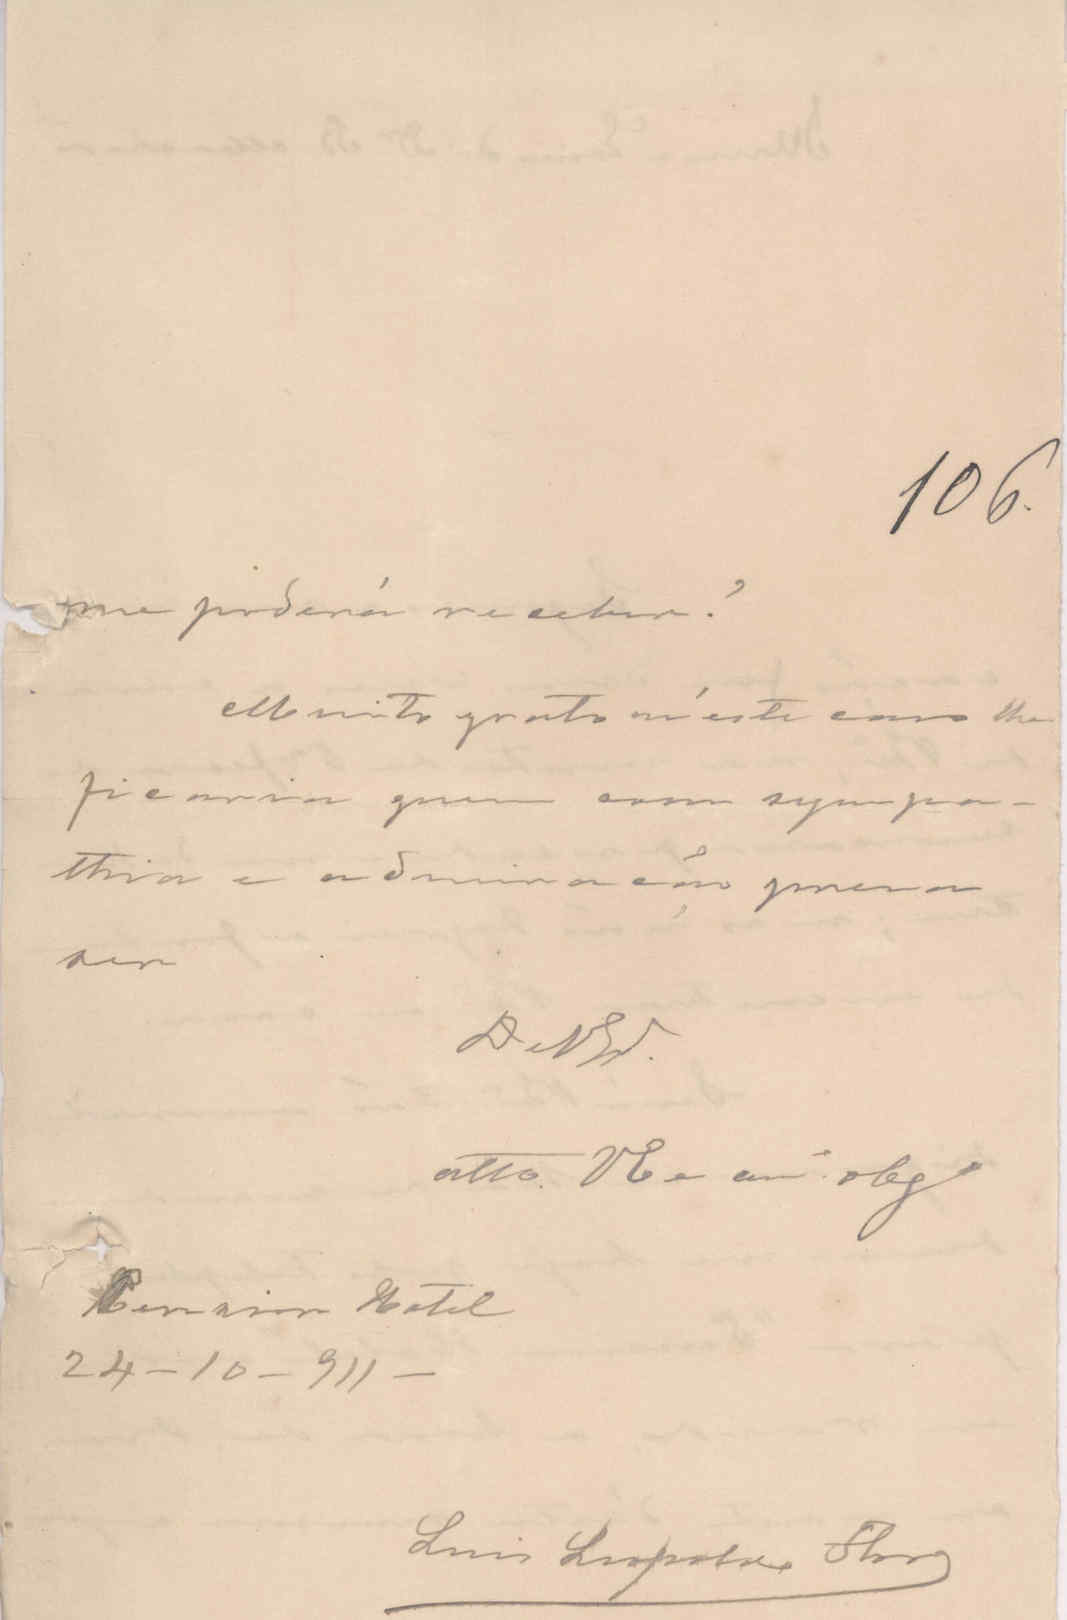 106.
me poderá receber?
Muito grato n'este caso lhe
ficaria quem com sympa-
thia e admiração presa
ser
De V Ex.
atto. Vr e am.º obgº
Pension Hotel
24-10-911-
Luis Leopoldo Flores